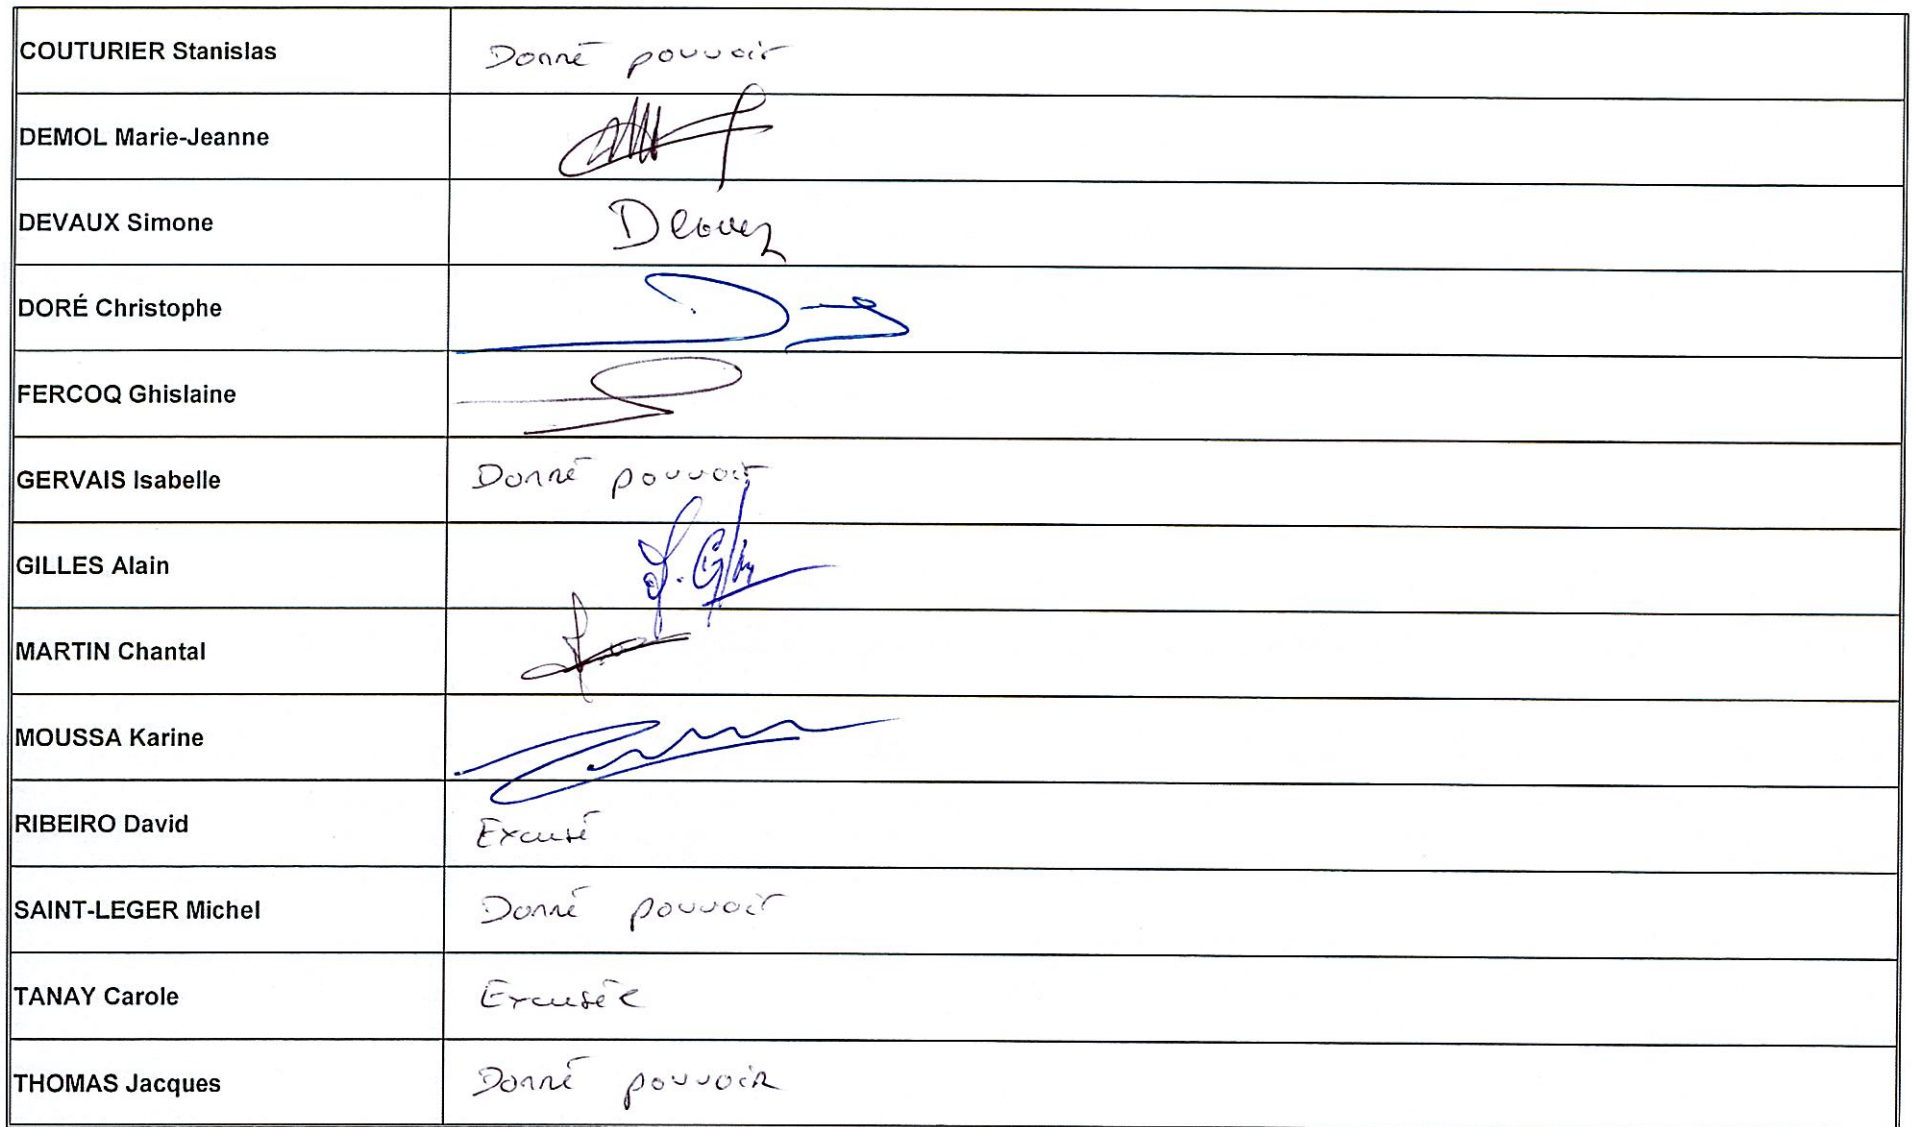 COUTURIER Stanislas Donné pouvoir
DEMOL Marie-Jeanne
DEVAUX Simone
DORÉ Christophe
FERCOQ Ghislaine
GERVAIS Isabelle Donné pouvoir
GILLES Alain
MARTIN Chantal
MOUSSA Karine
RIBEIRO David Excusé
SAINT-LEGER Michel Donné pouvoir
TANAY Carole Excusée
THOMAS Jacques Donné pouvoir